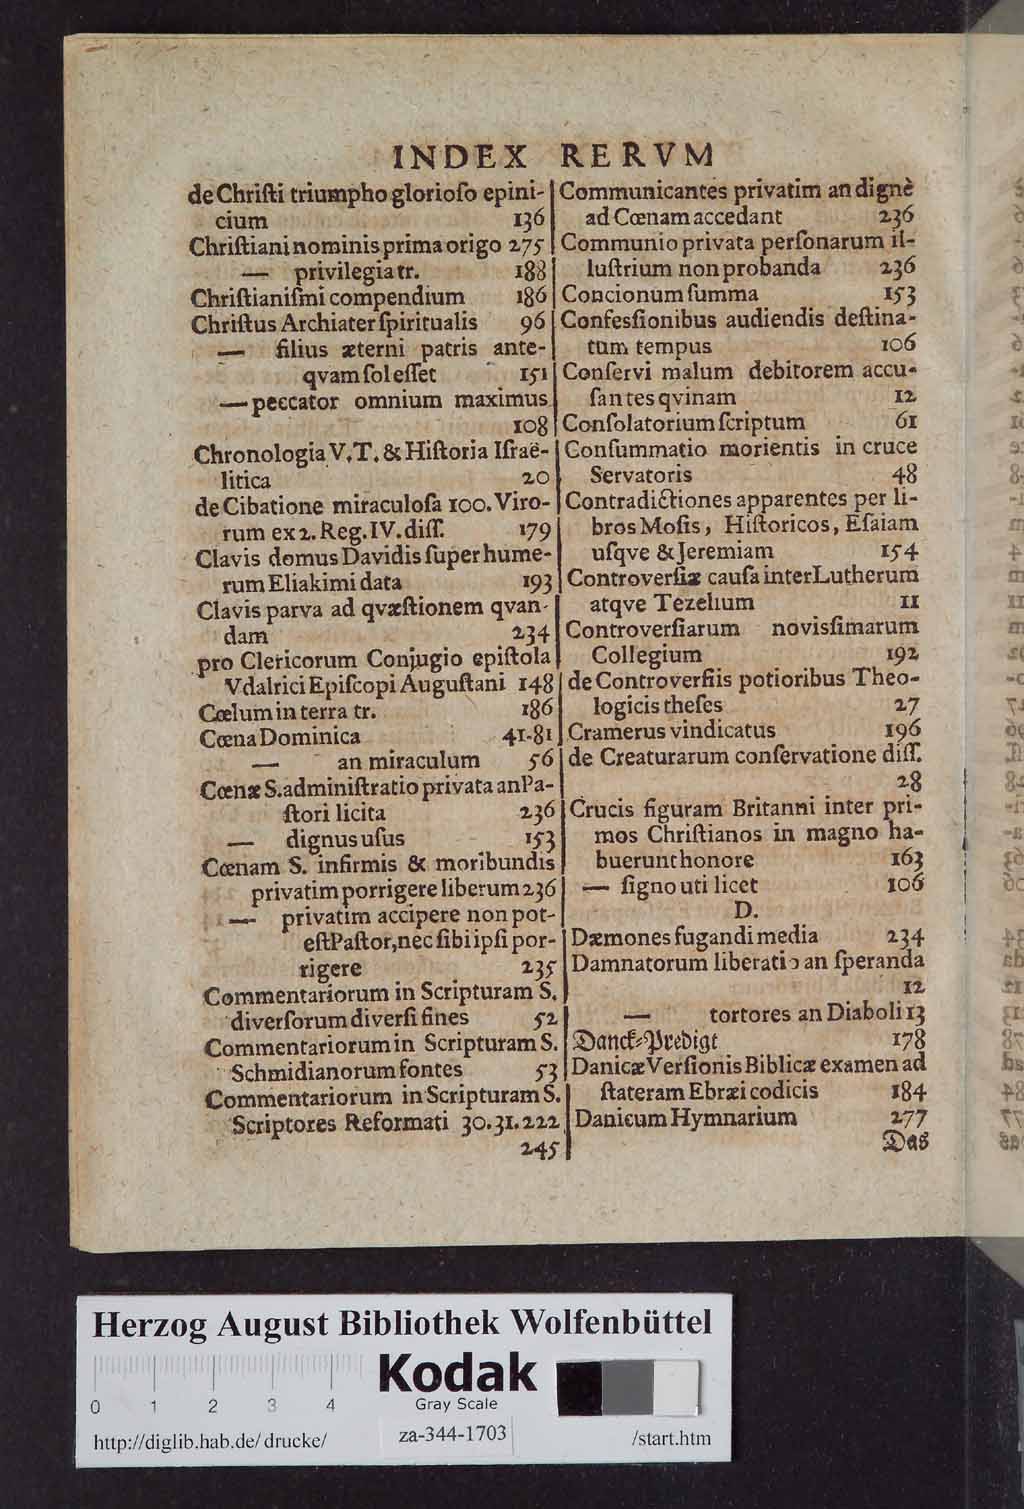 INDEX RERVM
de Chriſti triumpho glorioſo epini-
cium 136
Chriſtiani nominis prima origo 275
— privilegia tr. 188
Chriſtianiſmi compendium 186
Chriſtus Archiater ſpiritualis 96
— filius æterni patris ante-
qvam ſol eſſet 151
— peccator omnium maximus
108
Chronologia V. T. & Hiſtoria Iſraë-
litica 20
de Cibatione miraculoſa 100. Viro-
rum ex 2. Reg. IV. diſſ. 179
Clavis domus Davidis ſuper hume-
rum Eliakimi data 193
Clavis parva ad qvæſtionem qvan-
dam 234
pro Clericorum Conjugio epiſtola
Vdalrici Epiſcopi Auguſtani 148
Cœlum in terra tr. 186
Cœna Dominica 41-81
— an miraculum 56
Cœnæ S. adminiſtratio privata an Pa-
ſtori licita 236
— dignus uſus 153
Cœnam S. infirmis & moribundis
privatim porrigere liberum 236
— privatim accipere non pot-
eſt Paſtor, nec ſibi ipſi por-
rigere 235
Commentariorum in Scripturam S.
diverſorum diverſi fines 52
Commentariorum in Scripturam S.
Schmidianorum fontes 53
Commentariorum in Scripturam S.
Scriptores Reformati 30. 31. 222
245
Communicantes privatim an dignè
ad Cœnam accedant 236
Communio privata perſonarum il-
luſtrium non probanda 236
Concionum ſumma 153
Confesſionibus audiendis deſtina-
tum tempus 106
Conſervi malum debitorem accu-
ſantes qvinam 12
Conſolatorium ſcriptum 61
Conſummatio morientis in cruce
Servatoris 48
Contradictiones apparentes per li-
bros Moſis, Hiſtoricos, Eſaiam
uſqve & Jeremiam 154
Controverſiæ cauſa inter Lutherum
atqve Tezelium 11
Controverſiarum novisſimarum
Collegium 192
de Controverſiis potioribus Theo-
logicis theſes 27
Cramerus vindicatus 196
de Creaturarum conſervatione diſſ.
28
Crucis figuram Britanni inter pri-
mos Chriſtianos in magno ha-
buerunt honore 163
— ſigno uti licet 106
D.
Dæmones fugandi media 234
Damnatorum liberatio an ſperanda
12
— tortores an Diaboli 13
Danck-Predigt 178
Danicæ Verſionis Biblicæ examen ad
ſtateram Ebræi codicis 184
Danicum Hymnarium 277
Das
Herzog August Bibliothek Wolfenbüttel
Kodak
Gray Scale
0 1 2 3 4
http://diglib.hab.de/drucke/ za-344-1703 /start.htm